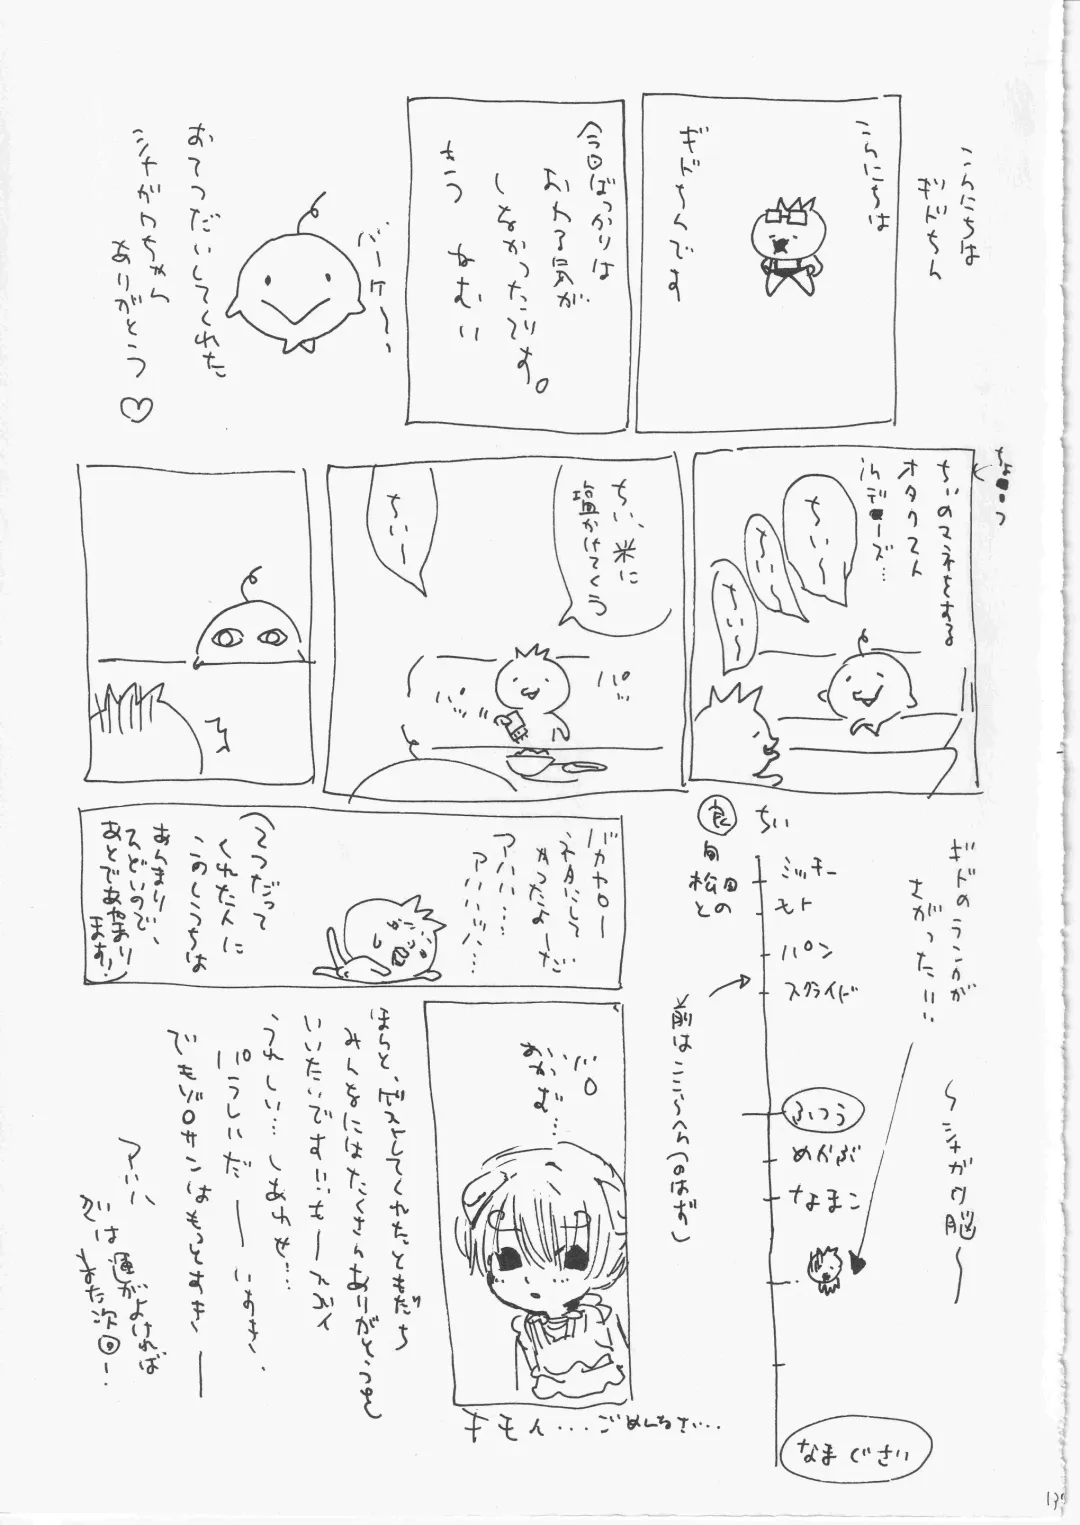 こんにちは
ギドちん
こんにちは
ギドちんです
今回ばっかりは
おわる気が
しなかったです。
もう ねむい
バーケ〜〜
おてつだいしてくれた
シナガワちゃん
ありがとう♡
ちょっつ
ちぃのマネをする
オタクスト
ちぃ〜
ちぃ〜
ちぃ〜
ちい、米に
塩かけてくう
ちぃー
パッ
パッパッ
バカヤロー
ネタにして
やったよーだ
アハハ…
アハハハハ…
(てつだって
くれた人に
このしうちは
あんまり
ひどいので、
あとであやまり
ます!)
ギドのランクが
さがった!!!
〜シナガワ脳〜
良
ちい
旬
松田の
と
ミッチー
モト
パン
スクライド
前はここらへん(のはず)
ふつう
めかぶ
なまこ
なまぐさい
パロ
おかむ…
キモイ...ごめんなさい...
ほんと、ゲストしてくれたともだち
みんなにはたくさんありがとうを
いいたいです!!
うれしい…しあわせ…
でもゾロサンはもっとすきー
アハハ
では運がよければ
また次回!